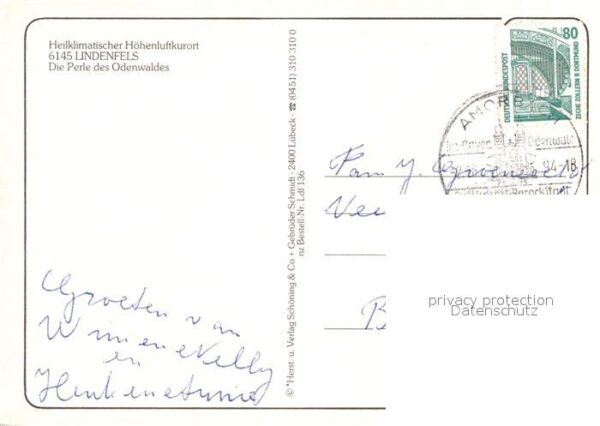 Heilklimatischer Höhenluftkurort
6145 LINDENFELS
Die Perle des Odenwaldes
© *Herst. u. Verlag Schöning & Co + Gebrüder Schmidt · 2400 Lübeck · ☎ (0451) 310 310 0
nz Bestell-Nr. Ldf 136
DEUTSCHE BUNDESPOST
80
ZECHE ZOLLERN II DORTMUND
AMOR
Odenwald
94-18
Fam. J.
B
privacy protection
Datenschutz
Groeten van
Wim en Nelly
en
Henk en